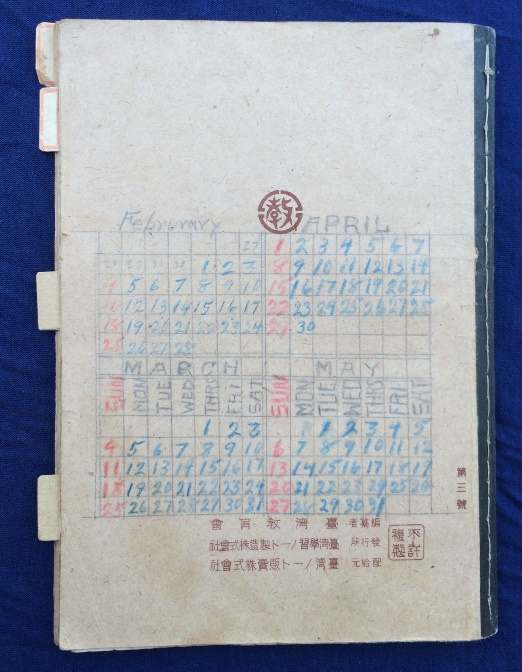 教
February APRIL
27 1 2 3 4 5 6 7
1 2 3 8 9 10 11 12 13 14
4 5 6 7 8 9 10 15 16 17 18 19 20 21
12 13 14 15 16 17 22 23 24 25 26 27 28
18 19 20 21 22 23 24 29 30
25 26 27 28
MARCH MAY
SUN MON TUE WED THRS FRI SAT SUN MON TUE WED THS FRI SAT
1 2 3 1 2 3 4 5
4 5 6 7 8 9 10 6 7 8 9 10 11 12
11 12 13 14 15 16 17 13 14 15 16 17 18 19
18 19 20 21 22 23 24 20 21 22 23 24 25 26
25 26 27 28 29 30 31 27 28 29 30 31
第三號
編纂者 臺灣敎育會
發行所 臺灣學習ノート製造株式會社
配給元 臺灣ノート販賣株式會社
不許複製